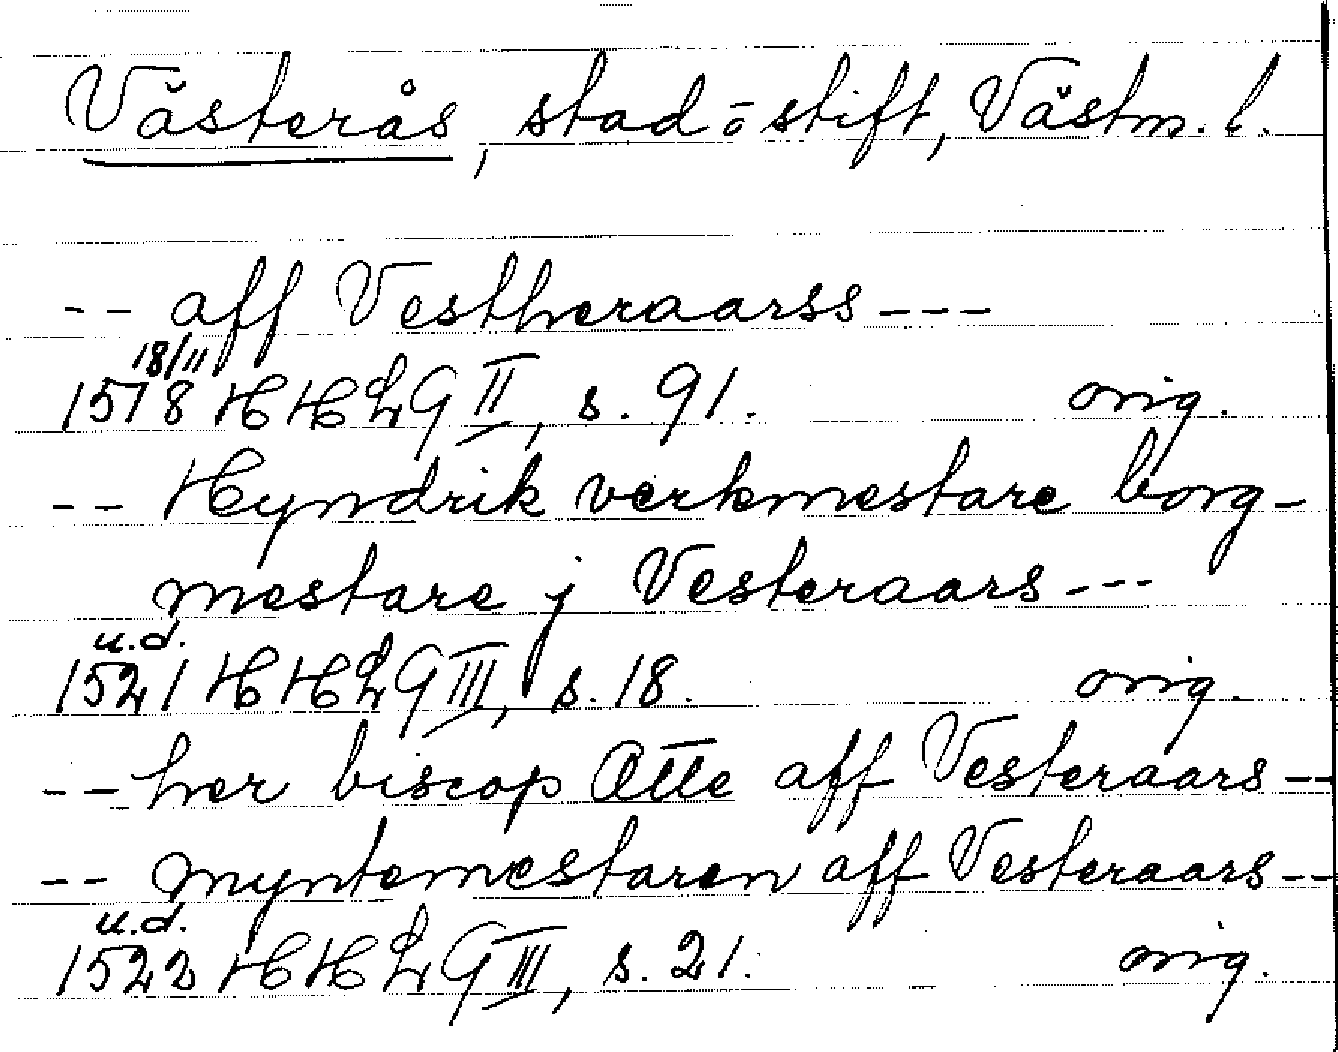 Västerås, stad o stift, Västm. l.
-- aff Vestheraarss ---
18/11
1518 HHLG II, s. 91. orig.
-- Hyndrik verkmestare borg-
mestare j Vesteraars ---
u.d.
1521 HHLG III, s. 18. orig.
-- her biscop Otte aff Vesteraars --
-- myntemestaren aff Vesteraars --
u.d.
1522 HHLG III, s. 21. orig.